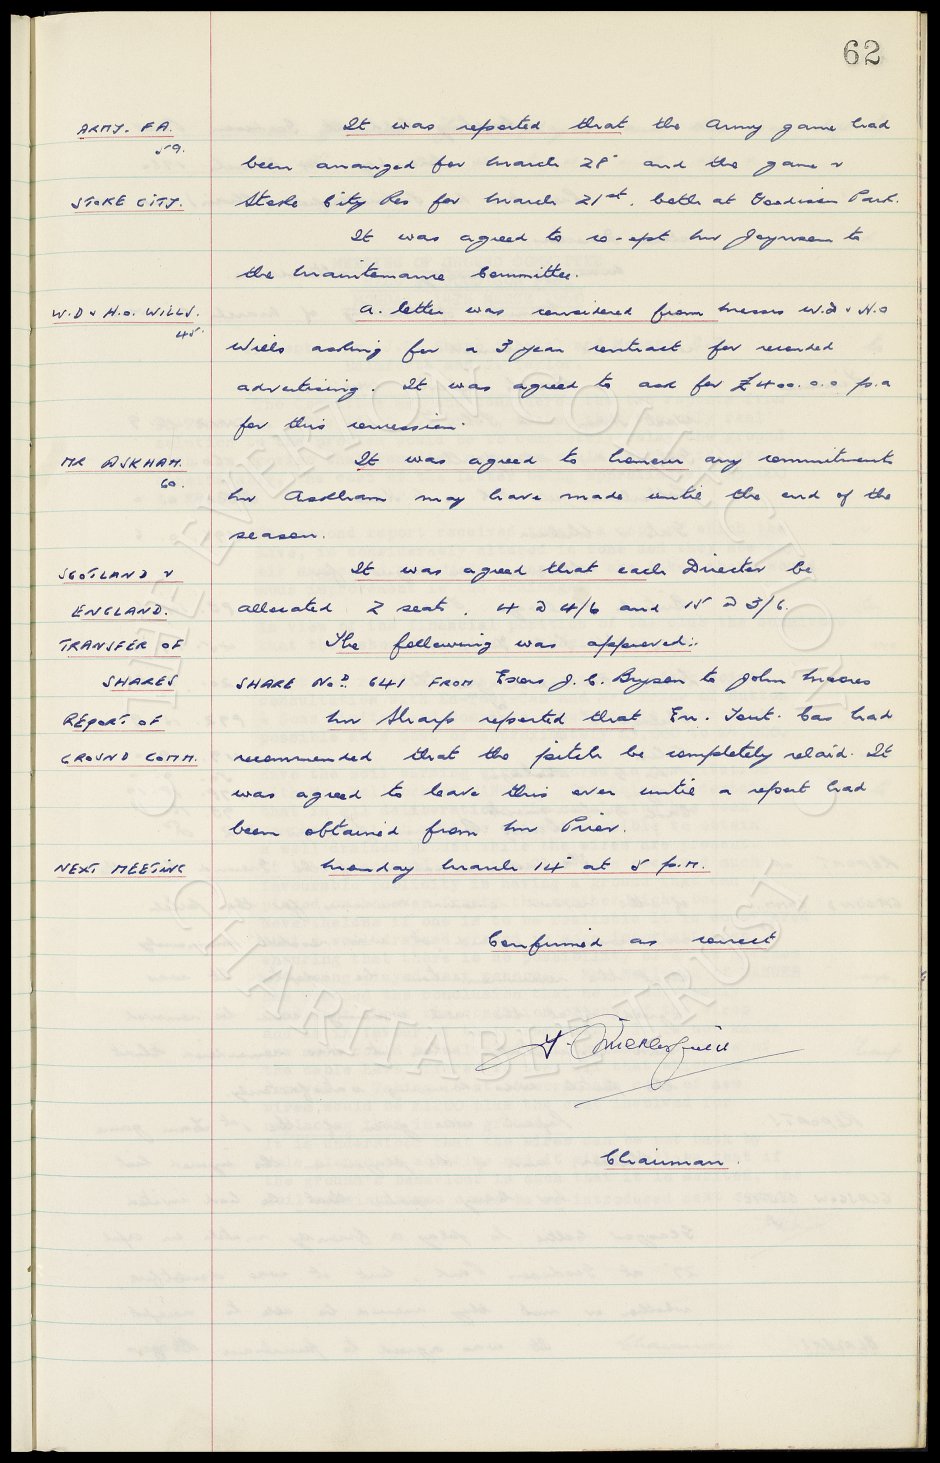 62
ARMY. F.A. It was reported that the Army game had
59. been arranged for March 28th and the game v
STOKE CITY. Stoke City Res for March 21st, both at Goodison Park.
It was agreed to co-opt Mr Joynson to
the Maintenance Committee.
W.D & H.O. WILLS. A. letter was considered from Messrs W.D & H.O
45. Wills asking for a 3 year contract for
advertising. It was agreed to ask for £400.0.0 p.a
for this concession.
MR ASKHAM. It was agreed to honour any commitments
60. Mr Askham may have made until the end of the
season.
SCOTLAND v It was agreed that each Director be
ENGLAND. allocated 2 seats, 4 @ 4/6 and 15 @ 3/6.
TRANSFER OF The following was approved:-
SHARES SHARE No. 641 FROM Exors J. C. Bryson to John Moores
REPORT OF Mr Sharp reported that En. Tout. Cas had
GROUND COMM. recommended that the pitch be completely relaid. It
was agreed to leave this over until a report had
been obtained from Mr Prior.
NEXT MEETING Monday March 14th at 5 p.m.
Confirmed as correct
Chairman.
THE EVERTON COLLECTION
CHARITABLE TRUST